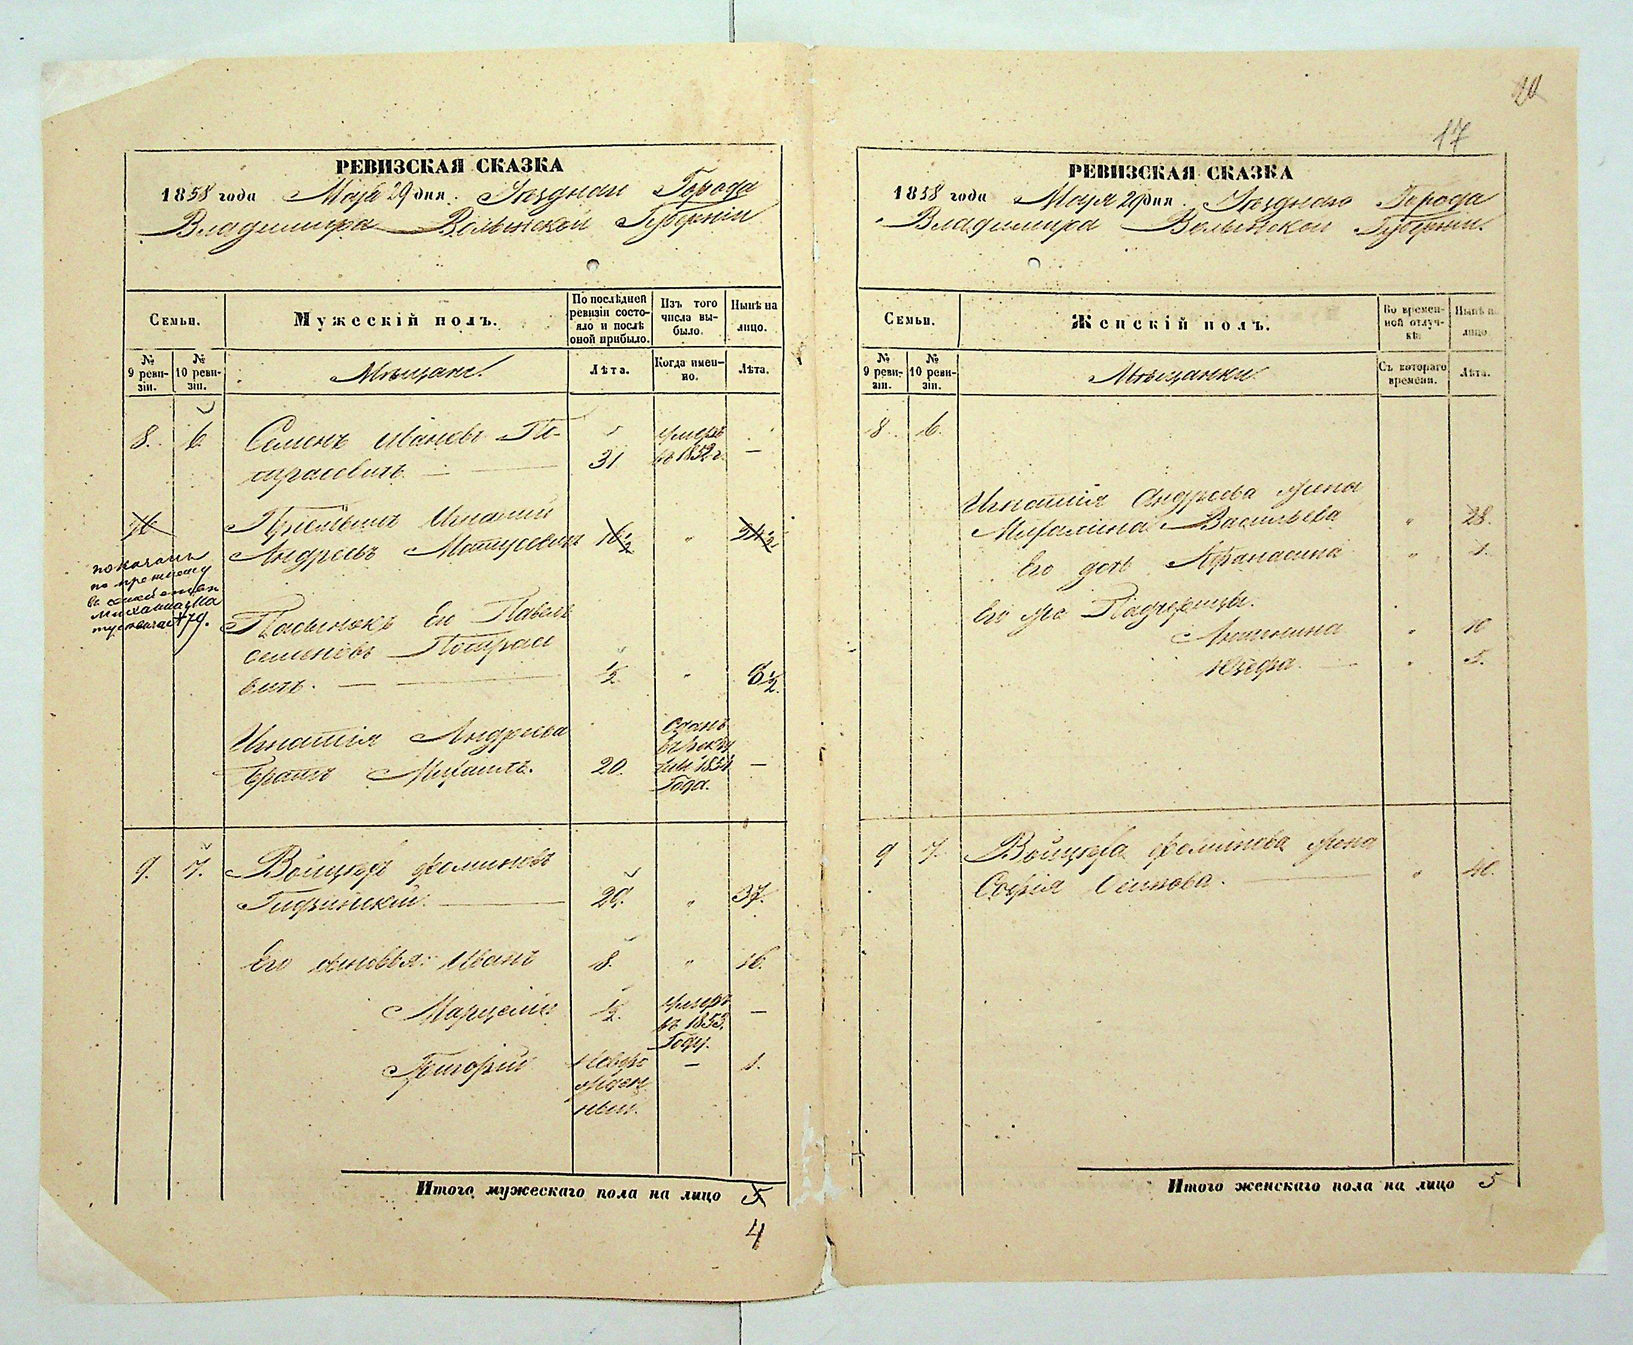 20
17
РЕВИЗСКАЯ СКАЗКА
1858 года Мая 29 дня. Уѣзднаго Города
Владимира Волынской Губерніи
Семьи.
Мужескій полъ.
По послѣдней ревизіи состояло и послѣ оной прибыло.
Изъ того числа выбыло.
Нынѣ на лицо.
№ 9 ревизіи.
№ 10 ревизіи.
Мѣщане.
Лѣта.
Когда именно.
Лѣта.
8. 6. Семенъ Ивановъ По-
31 умеръ въ 1852 г. —
76
Игнатій
Андреевъ Матусевичъ 16½ " 24½
показанъ
по прежнему
въ
Михаила Ма
тусевича №79.
Пасынокъ Его Павелъ
Семеновъ
вичъ. — ½ " 8½
Игнатія Андреева
братъ Михаилъ. 20. Сданъ въ рекруты 1854 Года. —
9. 7. Войцехъ Фоминовъ
29. " 37.
Его сыновья: Иванъ 8. " 16.
Марцелій ½. умеръ въ 1853. Году. —
Григорій новорожденный. — 1.
Итого мужескаго пола на лицо 5
4
РЕВИЗСКАЯ СКАЗКА
1858 года Мая 29 дня. Уѣзднаго Города
Владимира Волынской Губерніи.
Семьи.
Женскій полъ.
Во временной отлучкѣ.
Нынѣ на лицо.
№ 9 ревизіи.
№ 10 ревизіи.
Мѣщанки.
Съ котораго времени.
Лѣта.
8. 6.
Игнатія Андреева жена
Васильева " 28.
Его дочь Афанасина " 1.
Его же Падчерицы.
Антонина " 10
Юзефа — " 5.
9 7. Войцеха Фоминова жена
Софія Осипова. — " 40.
Итого женскаго пола на лицо 5